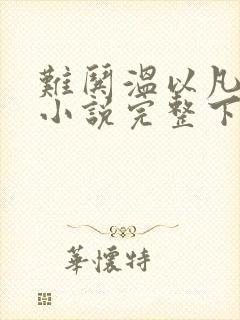 難鬨温以凡
小說完整下
華懷特